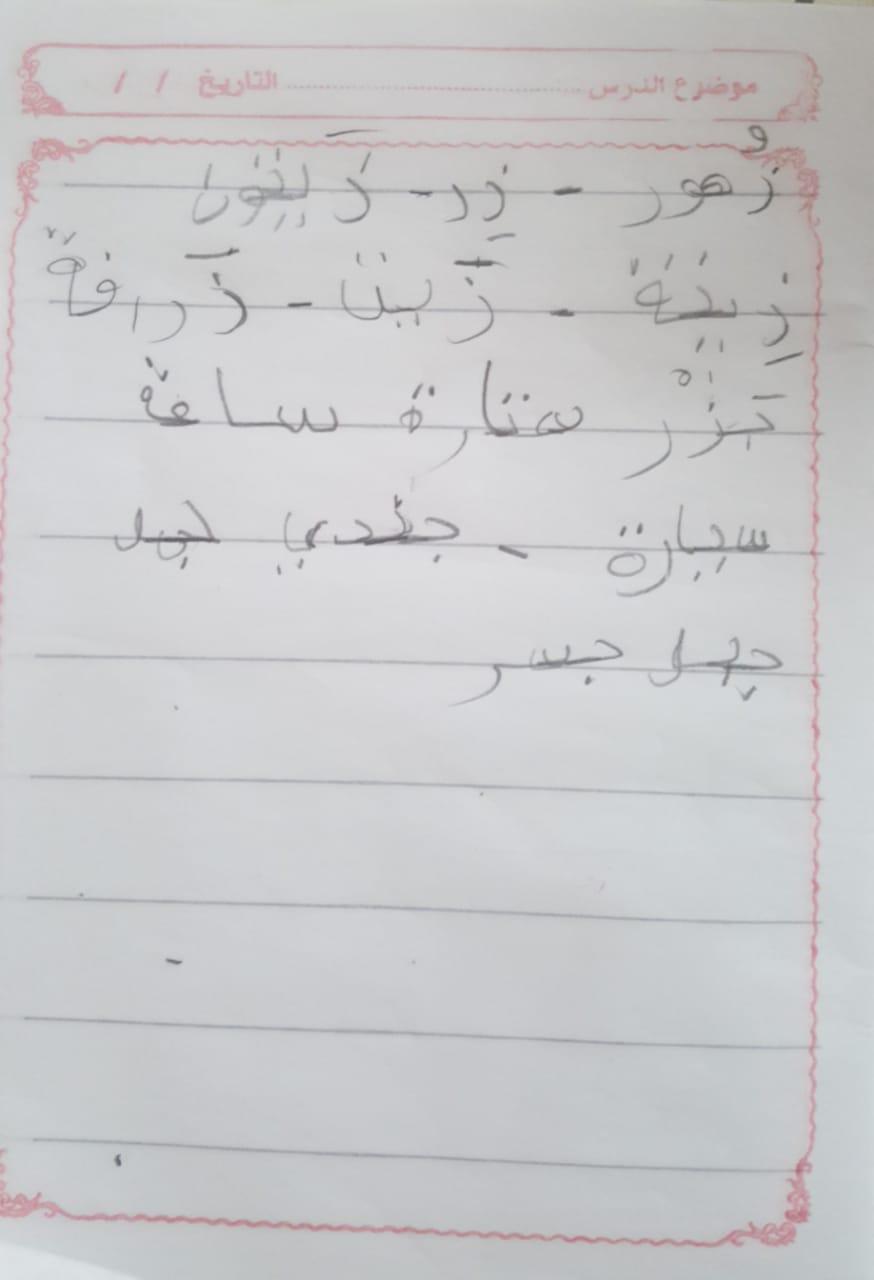 موضوع الدرس ........................ التاريخ / /
زُهور - زر - زَيتون
زِينة - زَيت - زَرافة
جَزَرْ ستارة ساعة
سيارة - جندي جبل
جمل جسر